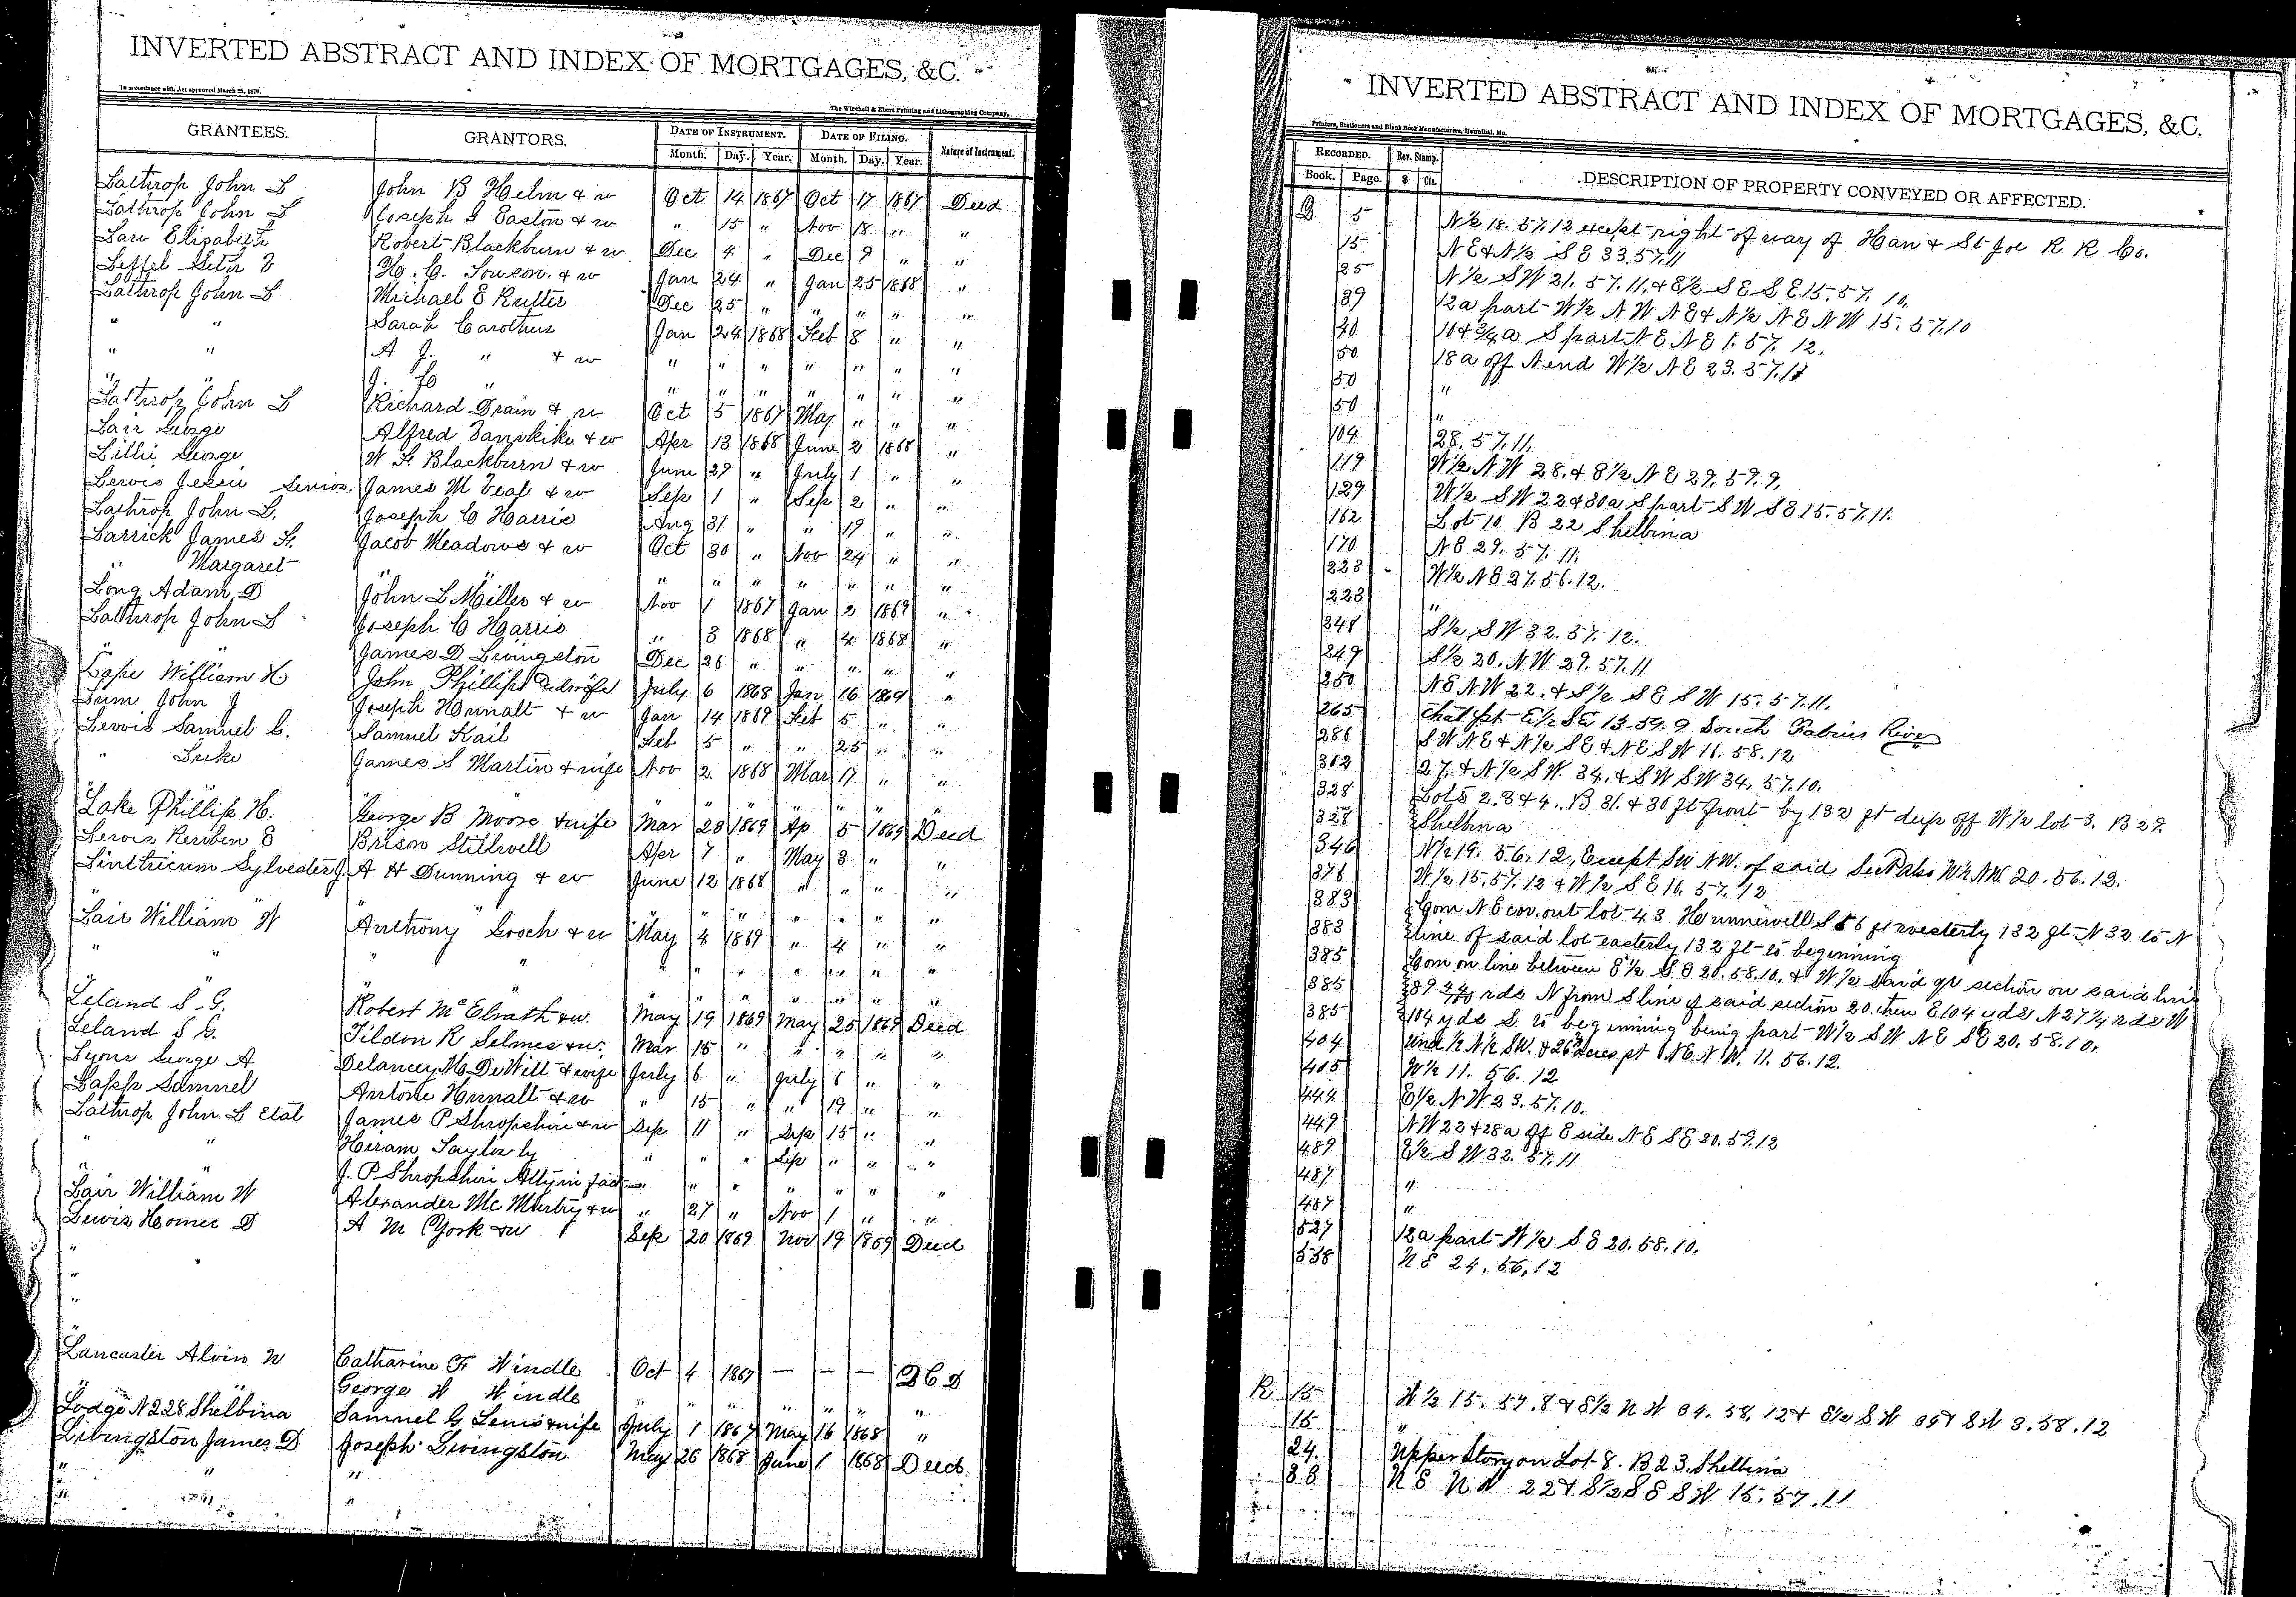 INVERTED ABSTRACT AND INDEX OF MORTGAGES, &C.
In accordance with Act approved March 25, 1870.
The Winchell & Ebert Printing and Lithographing Company,
GRANTEES. GRANTORS. DATE OF INSTRUMENT. DATE OF FILING. Nature of Instrument.
Month. Day. Year. Month. Day. Year.
Lathrop John L John B Helm & w Oct 14 1867 Oct 17 1867 Deed
Lathrop John L Joseph G Easton & w " 15 " Nov 18 " "
Lair Elizabeth Robert Blackburn & w Dec 4 " Dec 9 " "
Leffel H. C. & w Jan 24 " Jan 25 1868 "
Lathrop John L Michael E Rutter Dec 25 " " " " "
" " Sarah Carothers Jan 24 1868 Feb 8 " "
" " A J. " & w " " " " " " "
" " J. " " " " " " " "
Lathrop John L Richard Drain & w Oct 5 1867 May " " "
Lair George Alfred Vanskike & w Apr 13 1868 June 2 1868 "
Lillie George W F. Blackburn & w June 29 " July 1 " "
Lewis Jessie Senior James M Veal & w Sep 1 " Sep 2 " "
Lathrop John L. Joseph C Harris Aug 31 " " 19 " "
Larrick James H. Jacob Meadows & w Oct 30 " Nov 24 " "
" Margaret " " " " " " " "
Long Adam D John L Miller & w Nov 1 1867 Jan 2 1869 "
Lathrop John L Joseph C Harris " 3 1868 " 4 1868 "
" James D Livingston Dec 26 " " " " "
Lape William H John Phillips and wife July 6 1868 Jan 16 1869 "
Lum John J Joseph Hunnalt & w Jan 14 1869 Feb 5 " "
Lewis Samuel C. Samuel Kail Feb 5 " " 25 " "
" Luke James S Martin & wife Nov 2 1868 Mar 17 " "
" " " " " "
Lake Phillip H. George B Moore & wife Mar 23 1869 Ap 5 1869 Deed
Lewis Reuben E Brison Stillwell Apr 7 " May 3 " "
Linthicum Sylvester J. A H Dunning & w June 12 1868 " " " "
" " " " " " " "
Lair William W Anthony Gooch & w May 4 1869 " 4 " "
" " " " " " " " "
" " " " " " "
Leland S. G. Robert McElrath & w. May 19 1869 May 25 1869 Deed
Leland S G. Tildon R Selmes & w. Mar 15 " " " " "
Lyons George A Delancey M. DeWitt & wife July 6 " July 6 " "
Lapp Samuel Antone Hunnalt & w " 15 " " 19 " "
Lathrop John L etal James P Shropshire & w Sep 11 " Sep 15 " "
" " Hiram Taylor by " " " Sep " " "
" J. P Shropshire Atty in fact " " " " " " "
Lair William W Alexander McMurtry & w " 27 " Nov 1 " "
Lewis Homer D A M York & w Sep 20 1869 Nov 19 1869 Deed
"
"
"
"
Lancaster Alvin W Catharine F Windle Oct 4 1867 — — — D C D
" " George W Windle " " " " " " "
Lodge N 228 Shelbina Samuel G Lewis & wife July 1 1867 May 16 1868 "
Livingston James D Joseph Livingston May 26 1868 June 1 1868 Deed.
" " "
" " "
INVERTED ABSTRACT AND INDEX OF MORTGAGES, &C.
Printers, Stationers and Blank Book Manufacturers, Hannibal, Mo.
RECORDED. Rev. Stamp. DESCRIPTION OF PROPERTY CONVEYED OR AFFECTED.
Book. Page. $ Cts.
Q 5 N½ 18. 57. 12 except right of way of Han & St Joe R R Co.
15 N E & N½ S E 33. 57. 11
25 N½ S W 21. 57. 11. & E½ S E S E 15. 57. 10.
39 12a part W½ N W N E & N½ N E N W 15. 57. 10
40 S part N E N E 1. 57. 12.
50 18 a off N end W½ N E 23. 57. 11
50 "
50 "
104 28. 57. 11.
119 W½ N W 28. & E½ N E 29. 59. 9.
129 W½ S W 22 & 30a S part S W S E 15. 57. 11.
162 Lot 10 B 22 Shelbina
170 N E 29. 57. 11.
223 W½ N E 27. 56. 12.
223 "
248 S½ S W 32. 57. 12.
249 S½ 20. N W 29. 57. 11
250 N E N W 22. & S½ S E S W 15. 57. 11.
265 that pt E½ SE 13. 59. 9 South Fabius River
286 S W N E & N½ S E & N E S W 11. 58. 12
312 27. & N½ S W. 34. & S W S W 34. 57. 10.
328 Lots 2. 3 & 4. B 31. & 30 ft front by 132 ft deep off W½ lot 3. B 29.
328 Shelbina
346 N½ 19. 56. 12, Except SW NW. of said Sec & also W½ NW. 20. 56. 12.
376 W½ 15. 57. 12 & W½ S E 10. 57. 12
383 Com N E cor. out lot 43 Hunnewell S 56 ft westerly 132 ft N 32 to N
383 line of said lot easterly 132 ft to beginning
385 Com on line between E½ S E 20. 58. 10. & W½ said qr section on said line
385 rds N from S line of said section 20. then E 104 yds N 27¼ rds W
385 104 yds S to beginning being part W½ S W N E S E 20. 58. 10.
404 und ½ N½ SW. & 26 acres pt N E. N W. 11. 56. 12.
405 W½ 11. 56. 12
444 E½ N W 23. 57. 10.
449 N W 22 & 28a off E side N E S E 20. 59. 12
487 E½ S W 32. 57. 11
487 "
487 "
527 12a part W½ S E 20. 58. 10.
538 N E 24. 56. 12
R 15 W½ 15. 57. 8 & E½ N W 34. 58. 12 & E½ S W 35 & S W 3. 58. 12
15 "
24. Upper Story on Lot 8. B 23. Shelbina
38 N E N W 22 & S½ S E S W 15. 57. 11